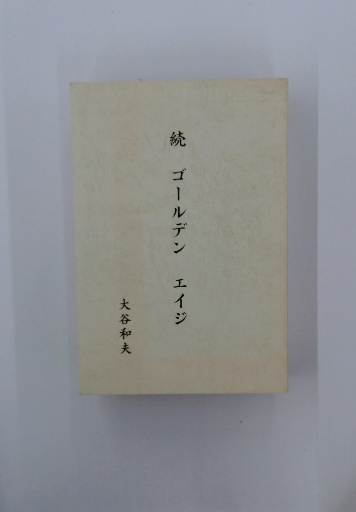 続　ゴールデン　エイジ
大谷和夫